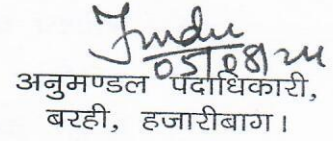 05/08/24
अनुमण्डल पदाधिकारी,
बरही, हजारीबाग।